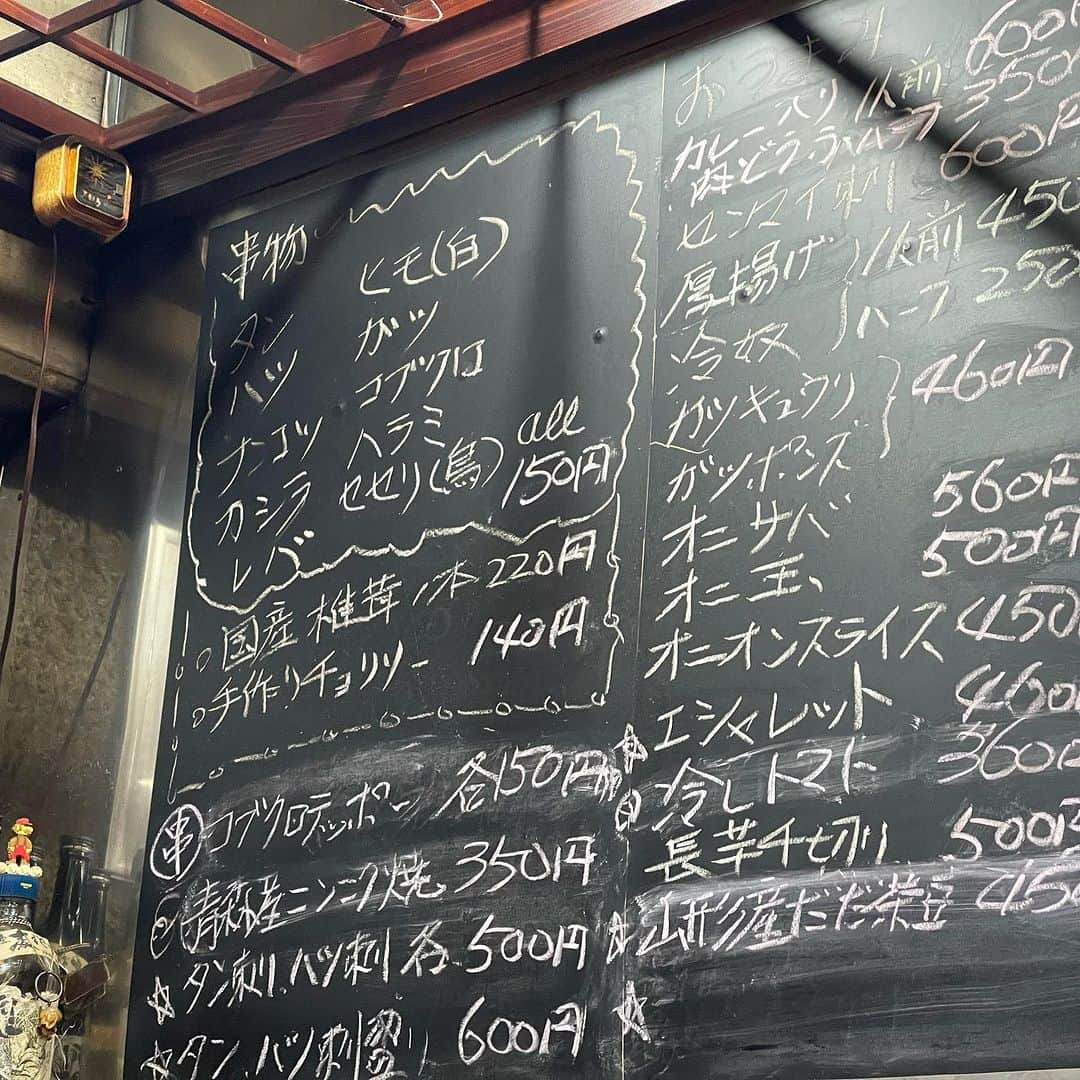 串物
タン ヒモ(白)
ハツ ガツ
ナンコツ コブクロ
カシラ ハラミ all
レバ セセリ(鳥) 150円
国産椎茸1本 220円
手作りチョリソー 140円
串 コブクロテッポー 各150円
青森産ニンニク焼 350円
☆タン刺、ハツ刺 各500円
☆タン、ハツ刺盛り 600円
おつまみ
カレー入り 1人前 600円
ハーフ 350円
センマイ刺 600円
厚揚げ 1人前 450
冷奴 ハーフ 250
ガツキュウリ 460円
ガツポンズ
オニサバ 560円
オニ玉 500円
オニオンスライス 450
エシャレット 460
☆冷しトマト 360円
長芋千切り 500円
☆山形産だだ茶豆 450
☆